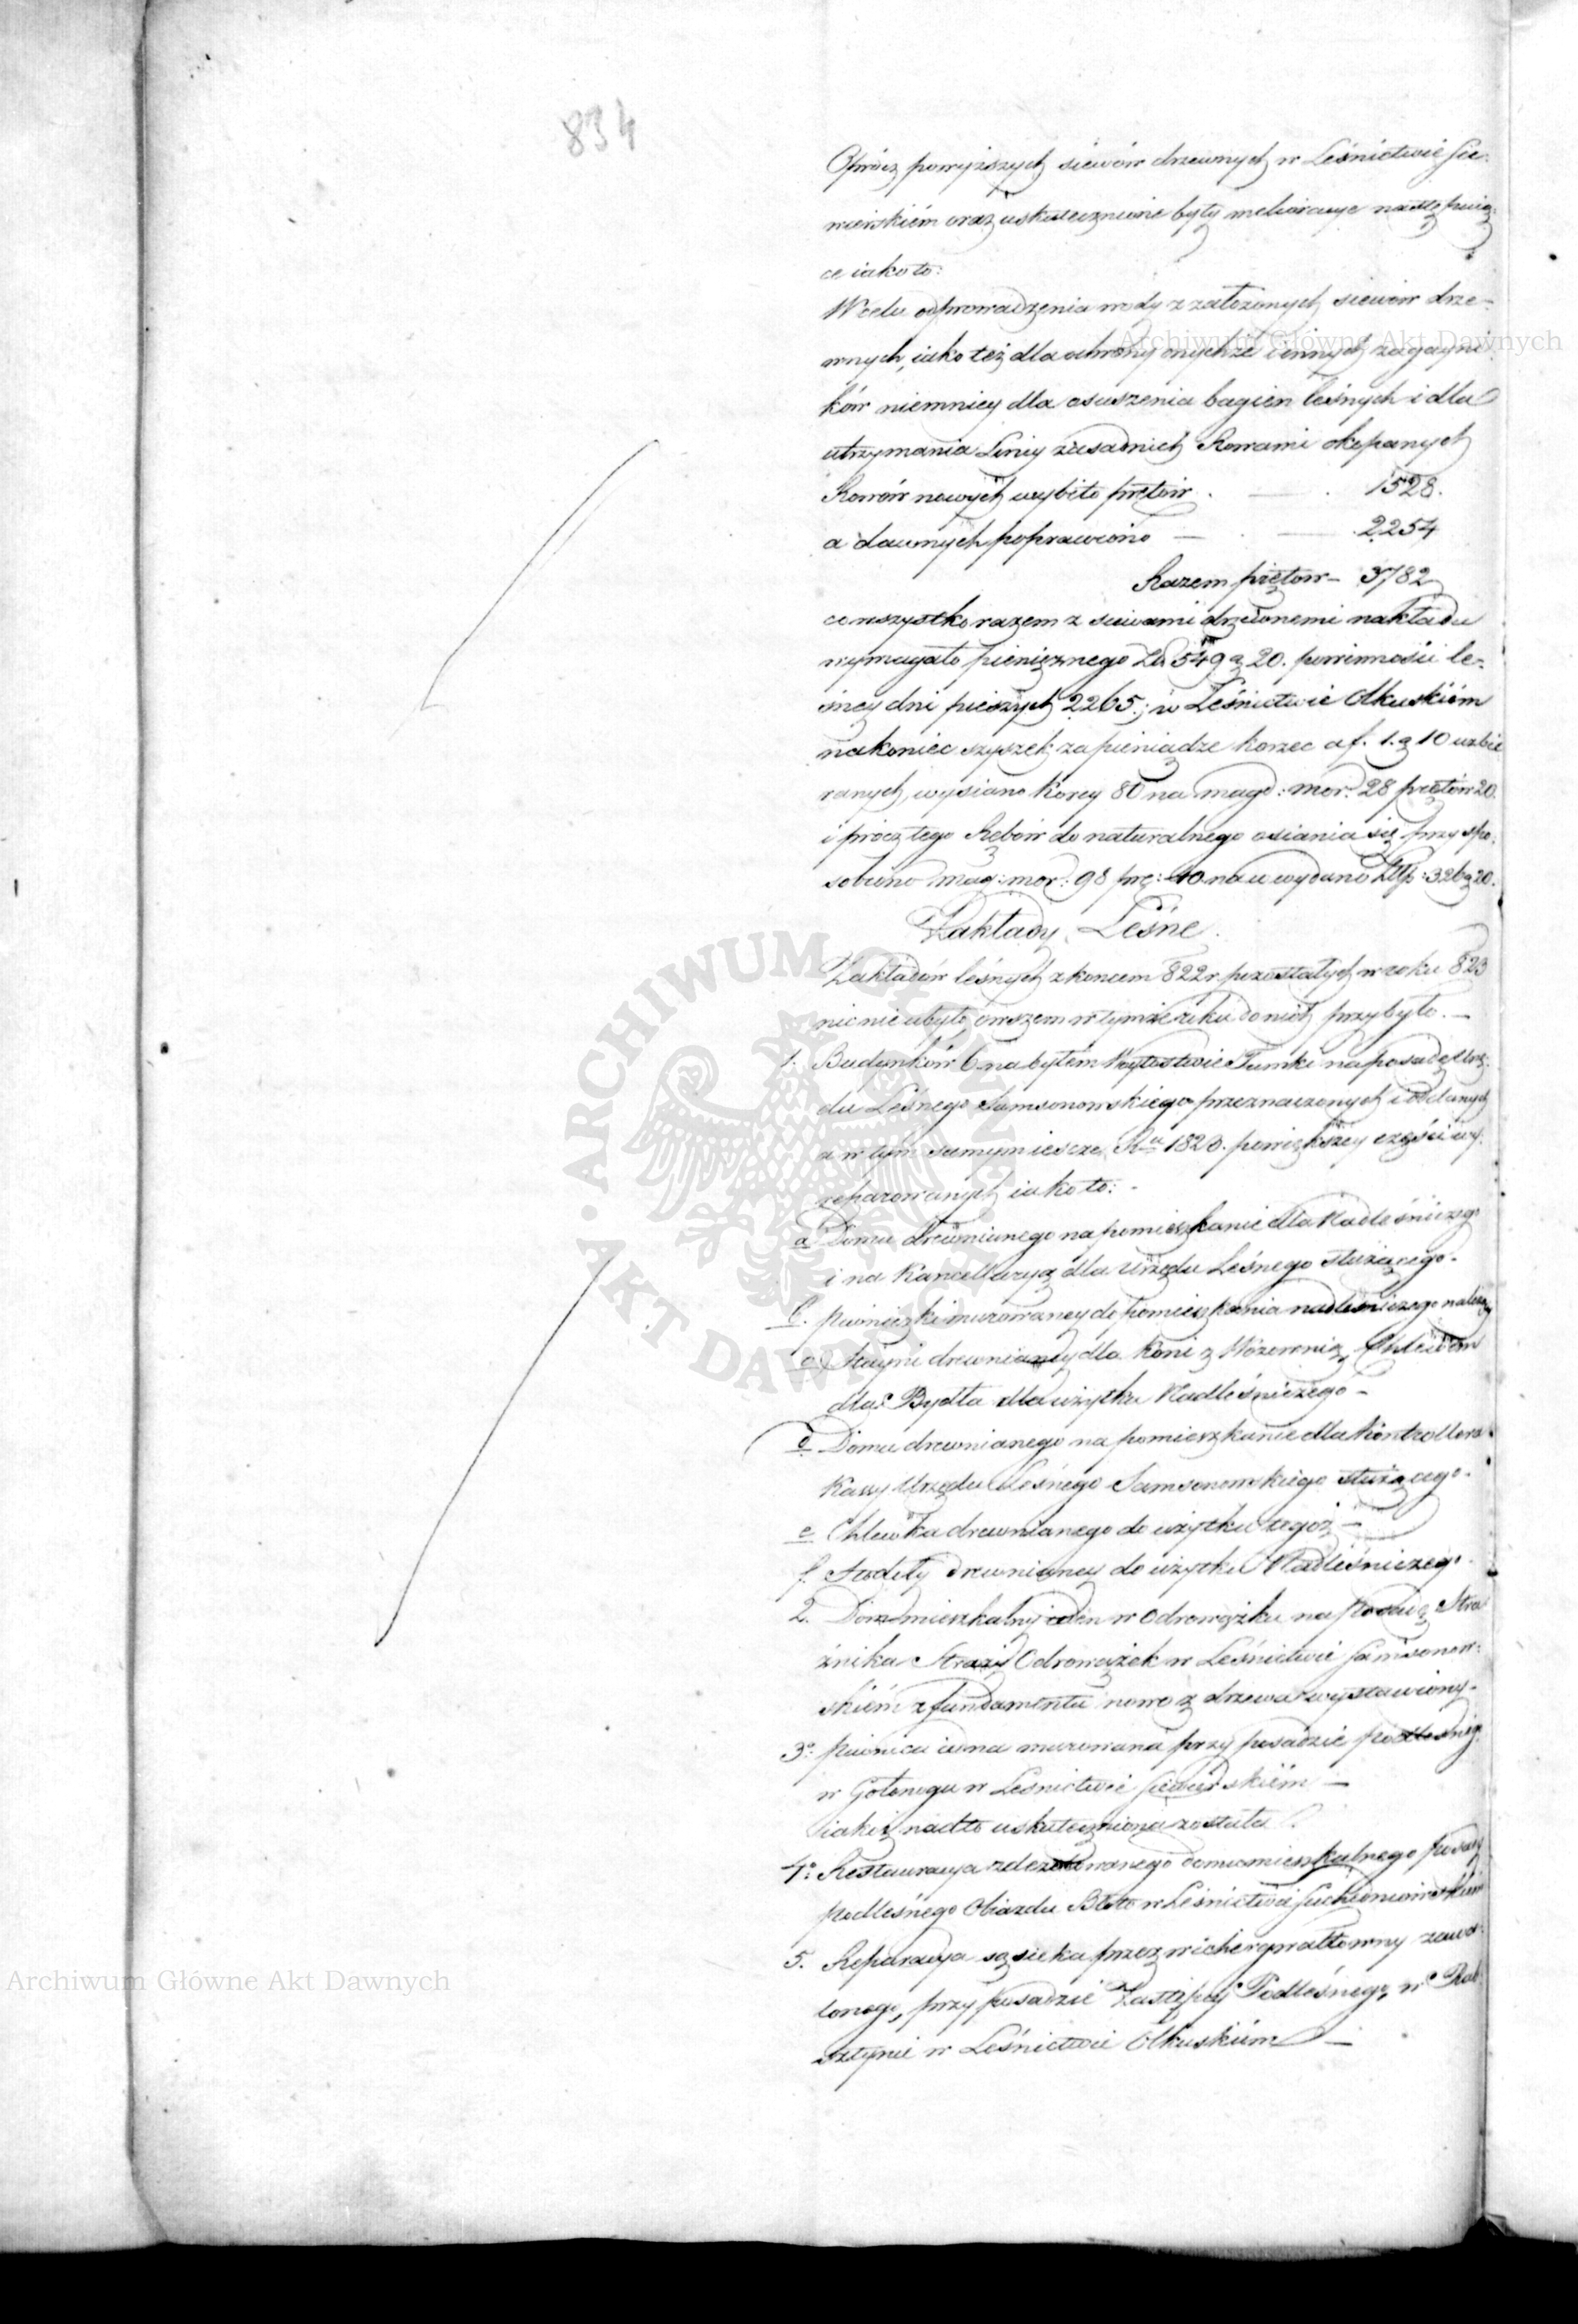 834
Oprócz powyższych siewów drzewnych w Leśnictwie Sie-
wierskiém oraz uskutecznione były melioracye następuią-
ce iako to:
W celu odprowadzenia wody z założonych siewów drze-
wnych, iako też dla ochrony onychże i innych zagayni-
ków niemniey dla osuszenia bagien leśnych i dla
utrzymania Liniy zasadnich Rowami okopanych
Rowów nowych wybito prętów . — . 1528.
a dawnych poprawiono — . — 2254
Razem prętów — 3782
co wszystko razem z siewami drzewnemi nakładu
wymagało pieniężnego Zł 549 g 20. powinności le-
śney dni pieszych 2265.; w Leśnictwie Olkuskiém
nakoniec szyszek za pieniądze korzec a f. 1. g 10 uzbie
ranych, wysiano korcy 80 na magd: mor. 28 prętów 20.
i prócz tego Rębów do naturalnego osiania się przyspo-
sobiono mag: mor: 98 prę: 40 na co wydano Złp: 326 g 20.
Zakłady Leśne.
Zakładów leśnych z końcem 822 r. pozostałych w roku 823
nic nie ubyło, owszem w tymże roku do nich przybyło. —
1. Budynków 6 na byłém Wóytostwie Tumki na posadę Urzę-
du Leśnego Samsonowskiego przeznaczonych i oddanych
a w tym samym iescze Ru 1823. powiększey części wy-
reparowanych iako to: -
a Domu drewnianego na pomieszkanie dla Nadleśniczego
i na Kancellaryą dla Urzędu Leśnego służącego -
b. piwniczki murowaney do pomieszkania nadleśniczego należącey
c Stayni drewnianey dla koni z Wozownią, Chlewów
dla Bydła dla użytku Nadleśniczego —
d Domu drewnianego na pomieszkanie dla Kontrollera
Kassy Urzędu Leśnego Samsonowskiego służącego -
e Chlewika drewnianego do użytku tegoż —
f. Stodoły drewnianey do użytku Nadleśniczego
2. Dom mieszkalny ieden w Odrowążku na posadę Stra
żnika Straży Odrowążek w Leśnictwie Samsonow-
skiém z fundamentu nowo z drzewa wystawiony -
3o: piwnica iedna murowana przy posadzie podleśneg:
w Gołonogu w Leśnictwie Siewierskiém —
iakiż nadto uskuteczniona została
4o: Restauracya zdezelowanego domu mieszkalnego posady
podleśnego Obiazdu Błoto w Leśnictwie Suchedniowskiém
5. Reparacya sąsieka przez wicher gwałtowny zawa-
lonego, przy posadzie Zastępcy Podleśnego, w Rab-
sztynie w Leśnictwie Olkuskiém —
Archiwum Główne Akt Dawnych
Archiwum Główne Akt Dawnych
ARCHIWUM GŁÓWNE AKT DAWNYCH